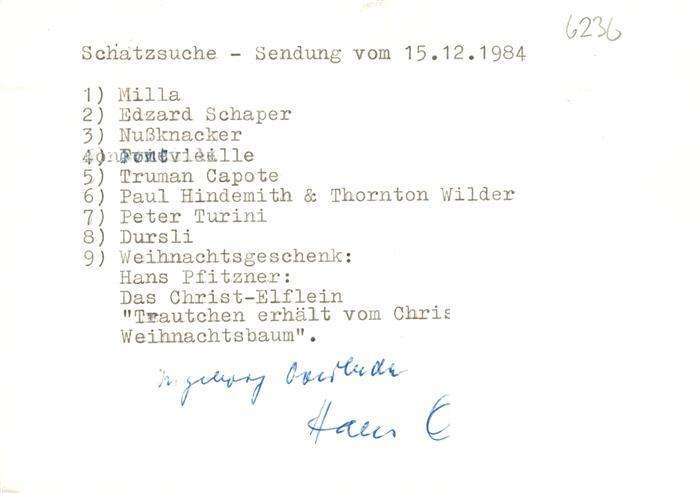 6236
Schatzsuche - Sendung vom 15.12.1984
1) Milla
2) Edzard Schaper
3) Nußknacker
4) Fontvieille
5) Truman Capote
6) Paul Hindemith & Thornton Wilder
7) Peter Turini
8) Dursli
9) Weihnachtsgeschenk:
Hans Pfitzner:
Das Christ-Elflein
"Trautchen erhält vom Chris
Weihnachtsbaum".
Ingeborg
Hans